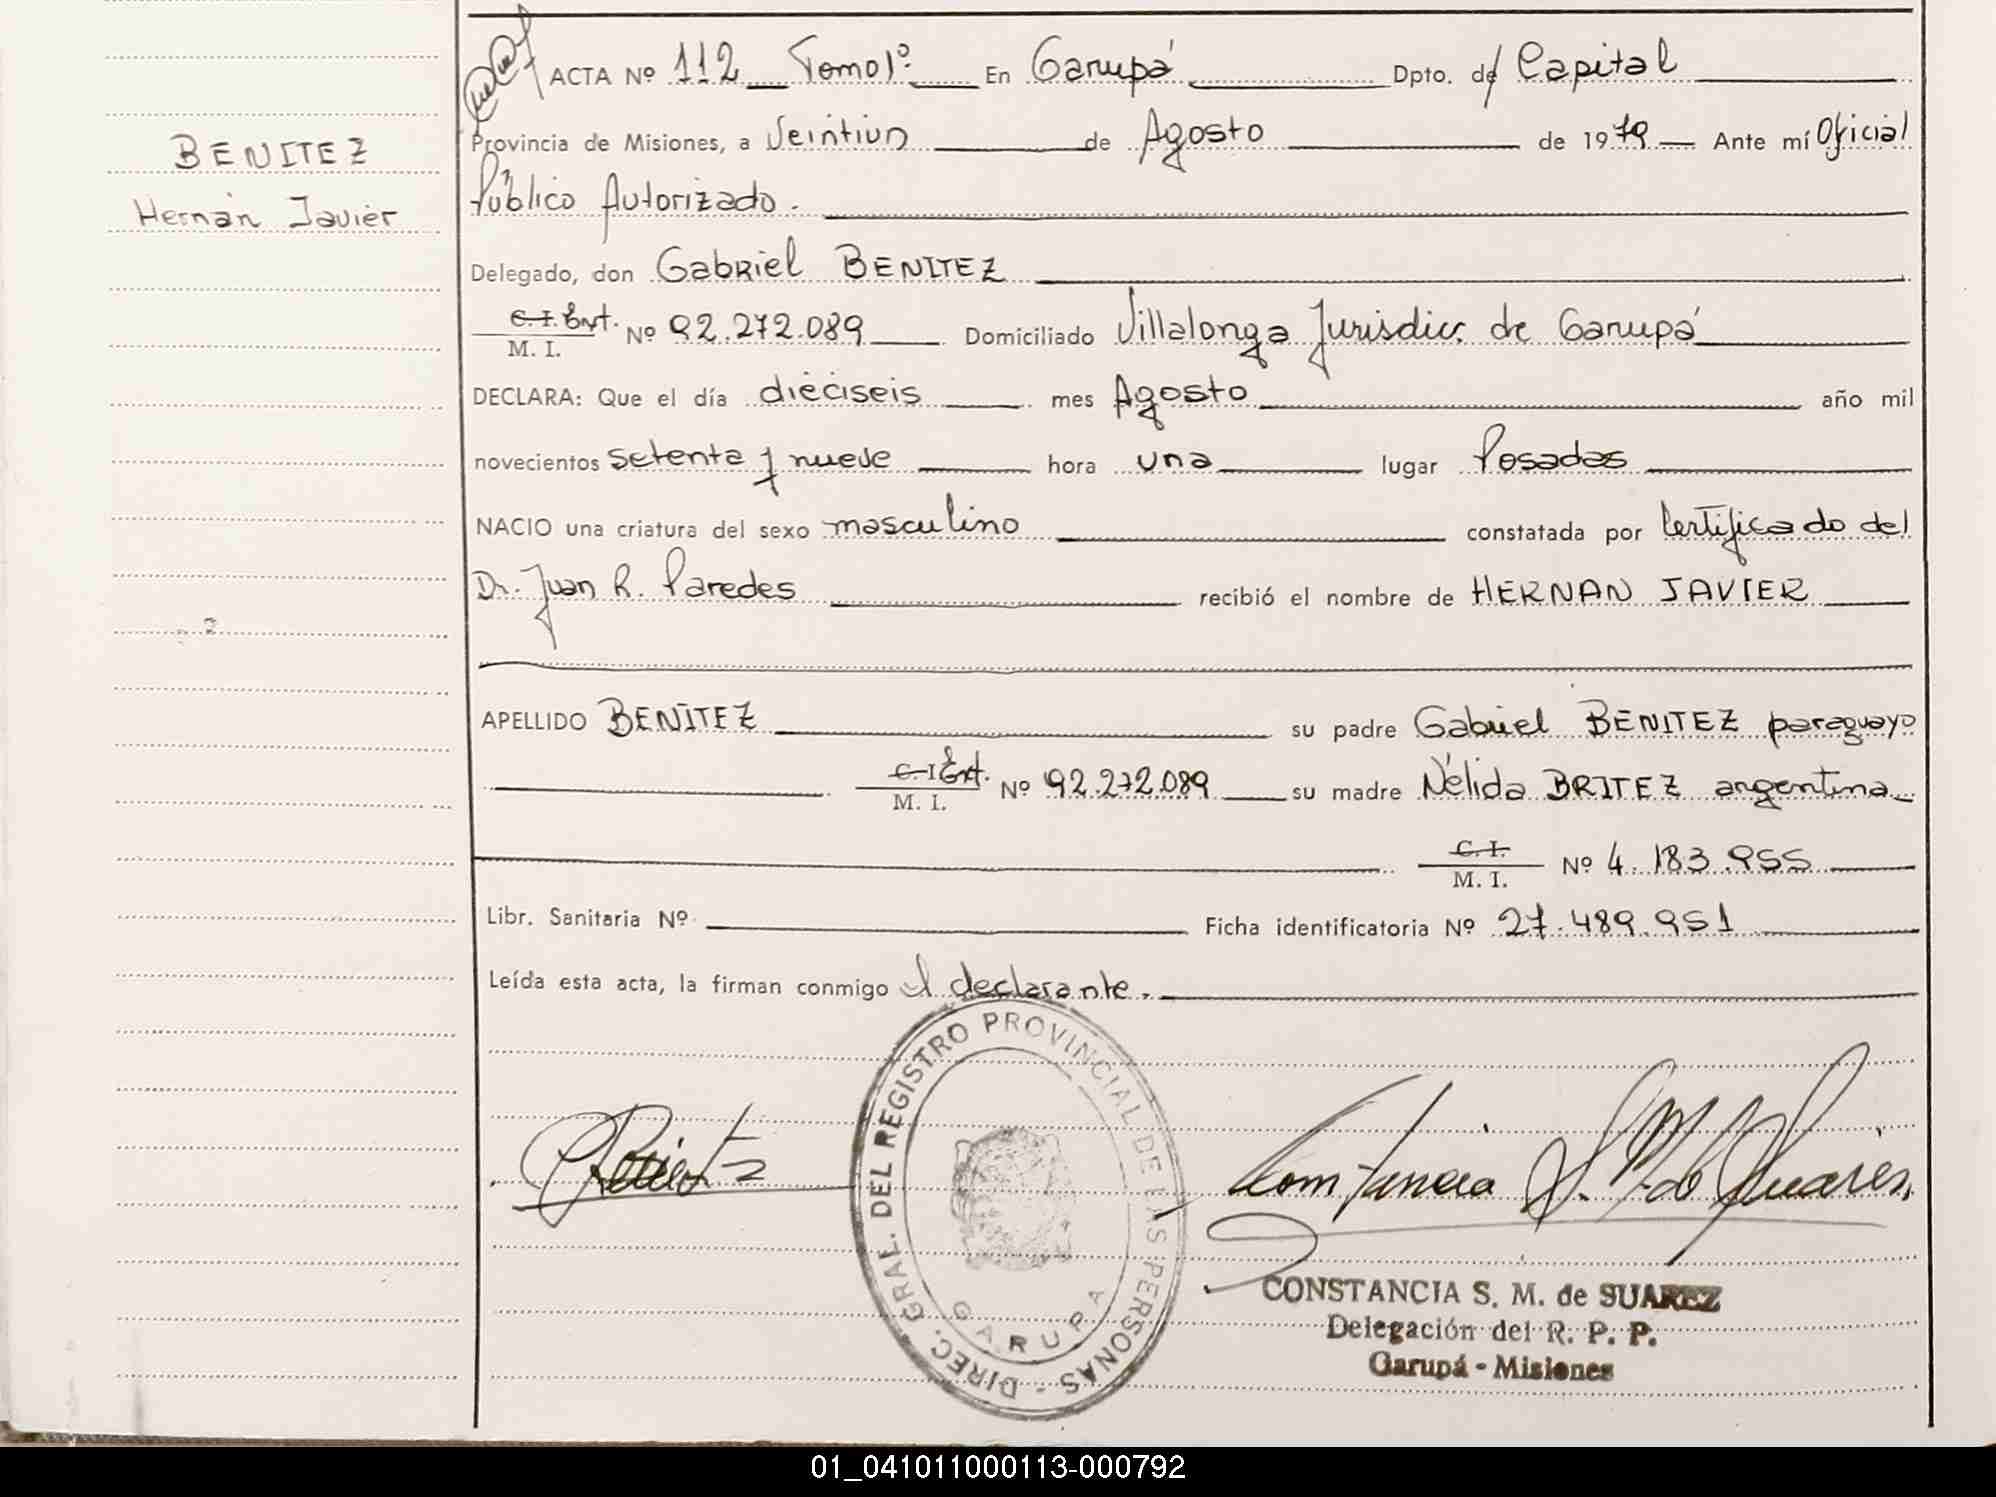 BENITEZ
Hernán Javier
ACTA Nº 112 Tomo 1º En Garupá Dpto. de Capital
Provincia de Misiones, a Veintiun de Agosto de 1979 Ante mí Oficial
Público Autorizado.
Delegado, don Gabriel BENITEZ
C.I. Ext. M. I. Nº 92.272.089 Domiciliado Villalonga Jurisdic. de Garupá
DECLARA: Que el día dieciseis mes Agosto año mil
novecientos setenta y nueve hora una lugar Posadas
NACIO una criatura del sexo masculino constatada por Certificado del
Dr. Juan R. Paredes recibió el nombre de HERNAN JAVIER
APELLIDO BENITEZ su padre Gabriel BENITEZ paraguayo
C.I Ext. M. I. Nº 92.272.089 su madre Nélida BRITEZ argentina
C. I. M. I. Nº 4.183.955
Libr. Sanitaria Nº Ficha identificatoria Nº 27.489.951
Leída esta acta, la firman conmigo el declarante.
DIREC. GRAL. DEL REGISTRO PROVINCIAL DE LAS PERSONAS -
GARUPA
Constancia S. M. de Suárez
CONSTANCIA S. M. de SUAREZ
Delegación del R. P. P.
Garupá - Misiones
01_041011000113-000792